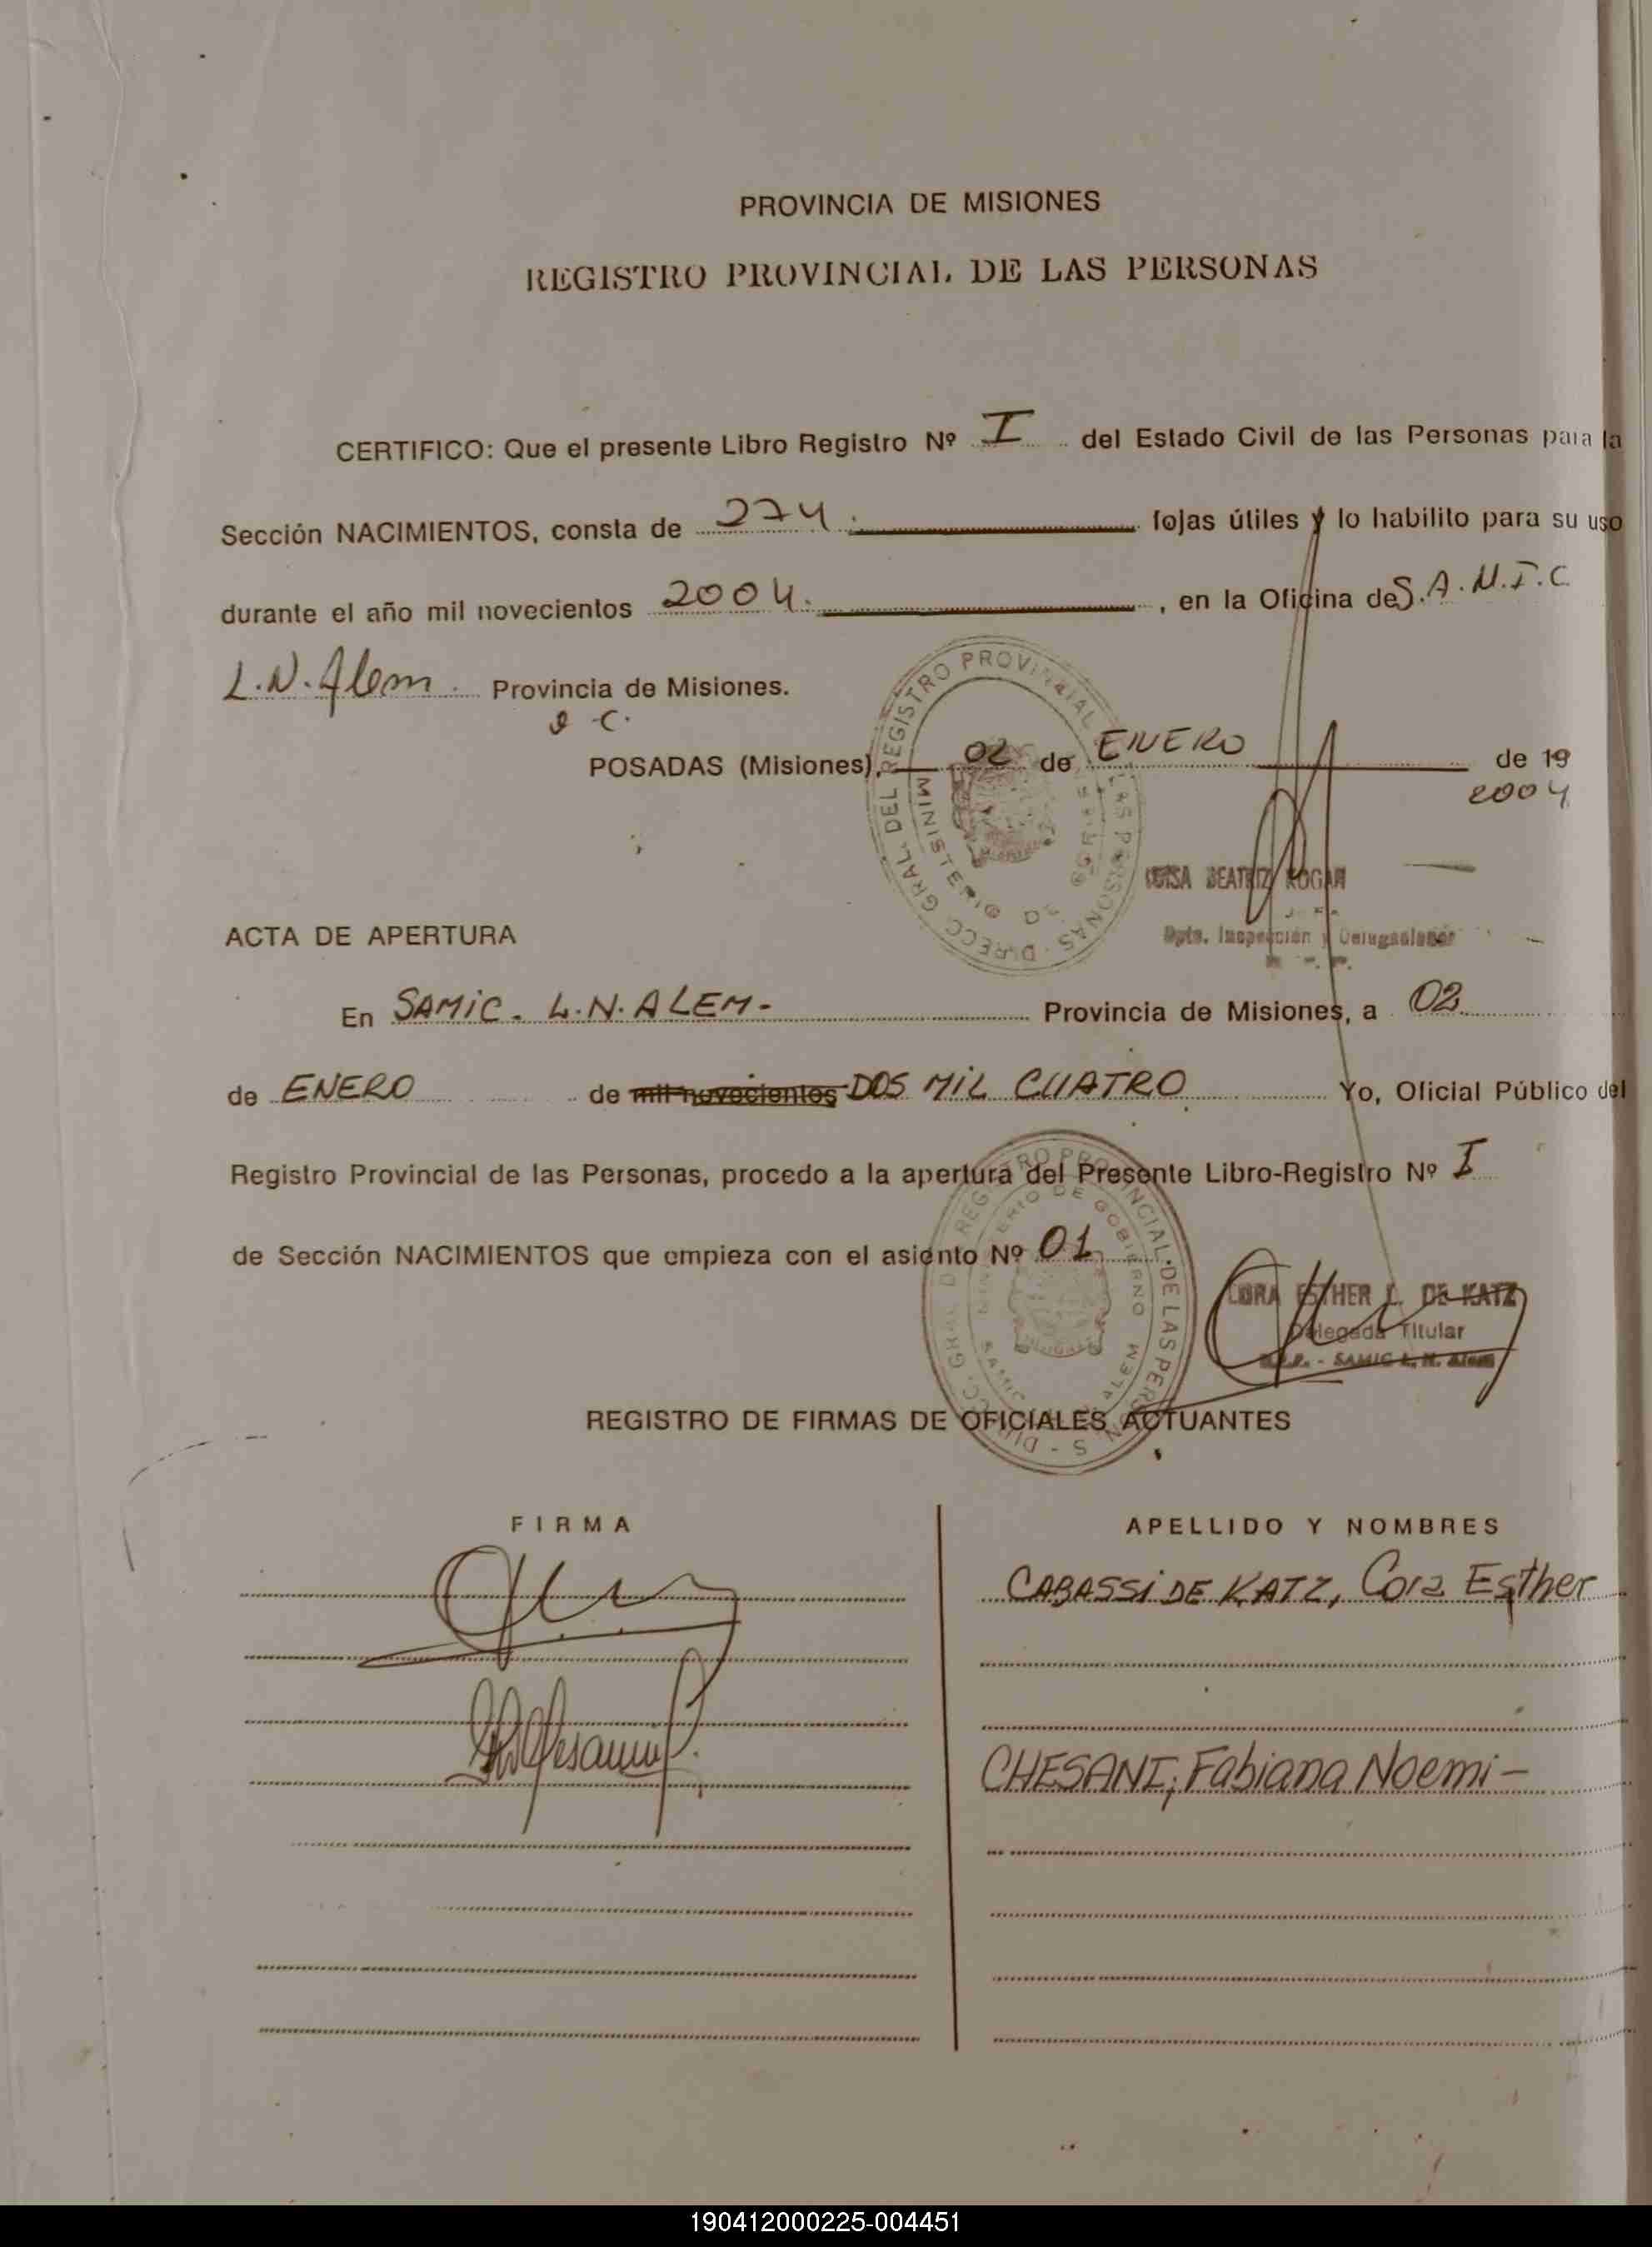 PROVINCIA DE MISIONES
REGISTRO PROVINCIAL DE LAS PERSONAS
CERTIFICO: Que el presente Libro Registro Nº I del Estado Civil de las Personas para la
Sección NACIMIENTOS, consta de 274. fojas útiles y lo habilito para su uso
durante el año mil novecientos 2004. , en la Oficina de S.A.M.I.C
L.N.Alem. Provincia de Misiones.
POSADAS (Misiones), 02 de ENERO de 19
2004
DIRECC. GRAL. DEL REGISTRO PROVINCIAL DE LAS PERSONAS
MINISTERIO DE
BEATRIZ
Dpto. Inspección y Delegaciones
ACTA DE APERTURA
En SAMIC. L.N.ALEM- Provincia de Misiones, a 02
de ENERO de mil novecientos DOS MIL CUATRO Yo, Oficial Público del
Registro Provincial de las Personas, procedo a la apertura del Presente Libro-Registro Nº I
de Sección NACIMIENTOS que empieza con el asiento Nº 01
DIRECC. GRAL. DEL REGISTRO PROVINCIAL DE LAS PERSONAS
MINISTERIO DE GOBIERNO
SAMIC ALEM
CORA ESTHER C. DE KATZ
Delegada Titular
R.P.P. - SAMIC L. N. Alem
REGISTRO DE FIRMAS DE OFICIALES ACTUANTES
FIRMA APELLIDO Y NOMBRES
CABASSI DE KATZ, Cora Esther
CHESANI, Fabiana Noemi-
190412000225-004451